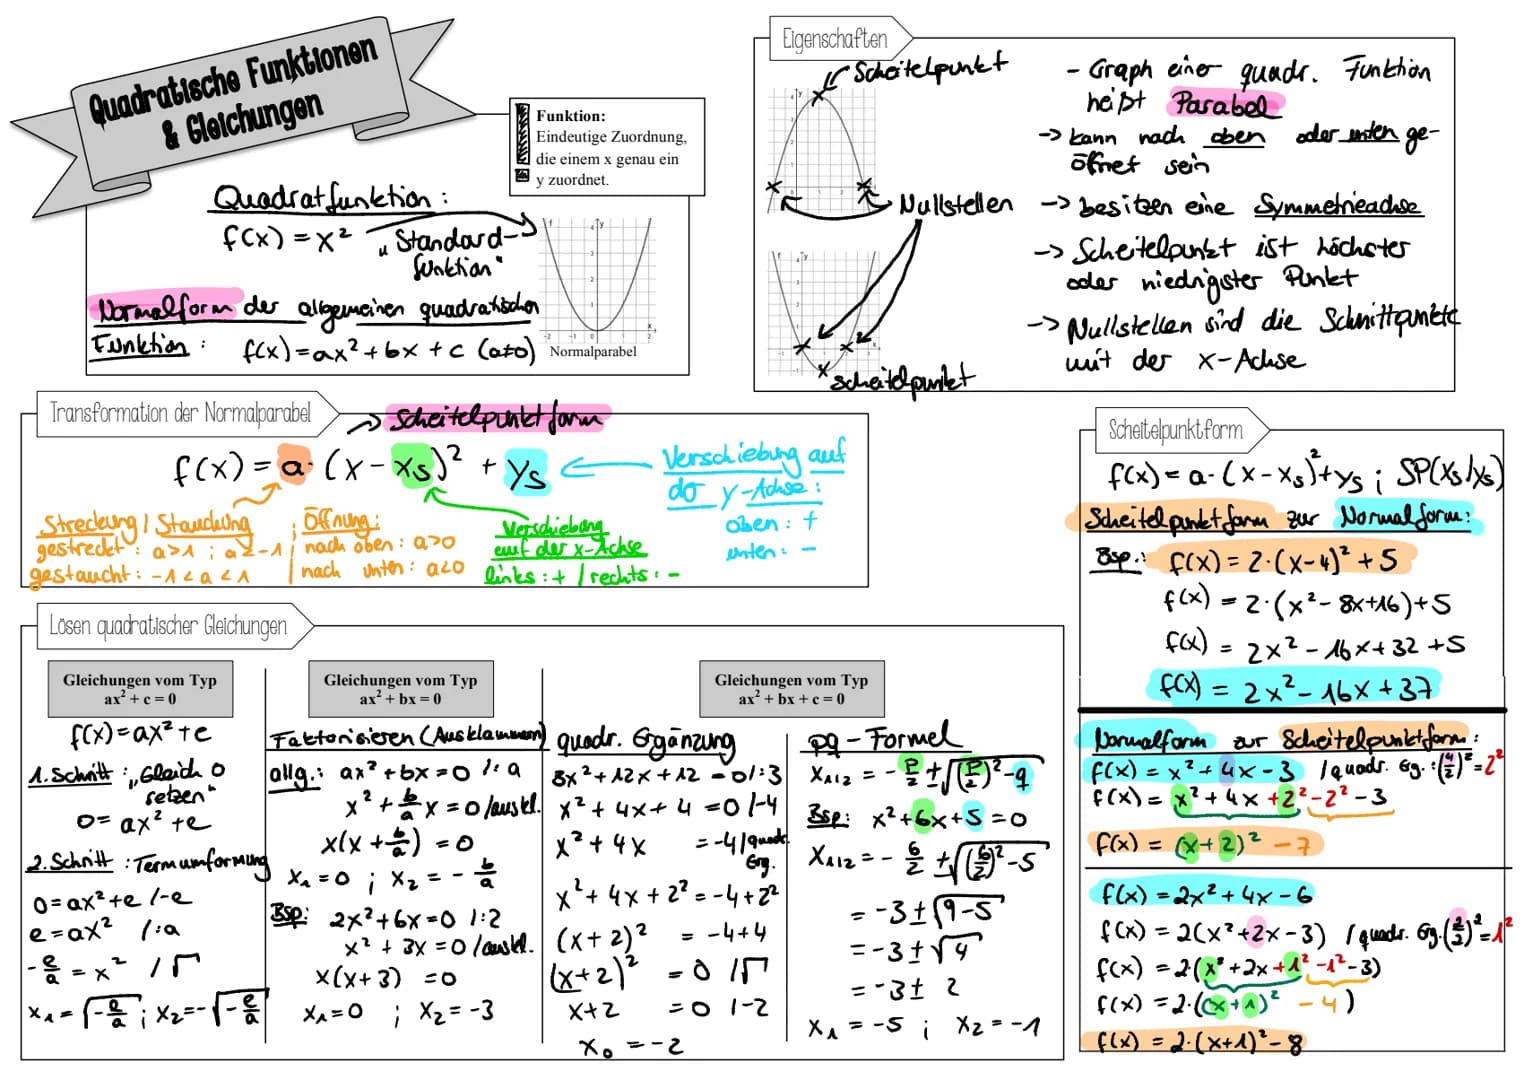 Quadratische Funktionen
& Gleichungen
Funktion:
Eindeutige Zuordnung,
die einem x genau ein
y zuordnet.
Quadratfunktion:
f(x) = x² „Standard-
funktion"
Normalform der allgemeinen quadratischen
Funktion: f(x) = ax² + bx + c (a≠0)
Normalparabel
Eigenschaften
Scheitelpunkt
Nullstellen
Scheitelpunkt
- Graph einer quadr. Funktion
heißt Parabel
-> kann nach oben oder unten ge-
öffnet sein
-> besitzen eine Symmetrieachse
-> Scheitelpunkt ist höchster
oder niedrigster Punkt
-> Nullstellen sind die Schnittpunkte
mit der x-Achse
Transformation der Normalparabel
-> Scheitelpunktform
f(x) = a· (x - xs)² + ys
Verschiebung auf
der y-Achse:
oben: +
unten: -
Streckung / Stauchung
gestreckt: a>1 ; a<-1
gestaucht: -1<a<1
Öffnung:
nach oben: a>0
nach unten: a<0
Verschiebung
auf der x-Achse
links: + / rechts: -
Scheitelpunktform
f(x) = a· (x-xs)²+ys ; SP(xs/ys)
Scheitelpunktform zur Normalform:
Bsp.: f(x) = 2·(x-4)² + 5
f(x) = 2·(x²- 8x+16)+5
f(x) = 2x² - 16x+32 +5
f(x) = 2x² - 16x + 37
Normalform zur Scheitelpunktform:
f(x) = x² + 4x - 3 /quadr. Erg.: (4/2)² = 2²
f(x) = x² + 4x +2² -2² - 3
f(x) = (x+2)² - 7
f(x) = 2x² + 4x - 6
f(x) = 2(x²+2x-3) / quadr. Erg. (2/2)² = 1²
f(x) = 2·(x² +2x +1² -1² -3)
f(x) = 2·((x+1)² - 4)
f(x) = 2·(x+1)² - 8
Lösen quadratischer Gleichungen
Gleichungen vom Typ
ax² + c = 0
f(x) = ax² + e
1. Schritt: „Gleich 0
setzen"
0 = ax² + e
2. Schritt: Termumformung
0 = ax²+e /-e
e = ax² /:a
-e/a = x² /√
x₁ = √-e/a ; x₂ = -√-e/a
Gleichungen vom Typ
ax² + bx = 0
Faktorisieren (Ausklammern)
allg.: ax² + bx = 0 /:a
x² + b/a x = 0 /auskl.
x(x + b/a) = 0
x₁ = 0 ; x₂ = - b/a
Bsp: 2x²+6x=0 /:2
x² + 3x = 0 /auskl.
x(x+3) = 0
x₁=0 ; x₂ = -3
Gleichungen vom Typ
ax² + bx + c = 0
quadr. Ergänzung
3x² + 12x + 12 = 0 /:3
x² + 4x + 4 = 0 /-4
x² + 4x = -4 /quadr.
Erg.
x² + 4x + 2² = -4+2²
(x+2)² = -4+4
(x+2)² = 0 /√
x+2 = 0 /-2
x₀ = -2
pq - Formel
x₁/₂ = - p/2 ± √(p/2)² - q
Bsp: x²+6x+5 = 0
x₁/₂ = - 6/2 ± √(6/2)² - 5
= -3 ± √9-5
= -3 ± √4
= -3 ± 2
x₁ = -5 ; x₂ = -1